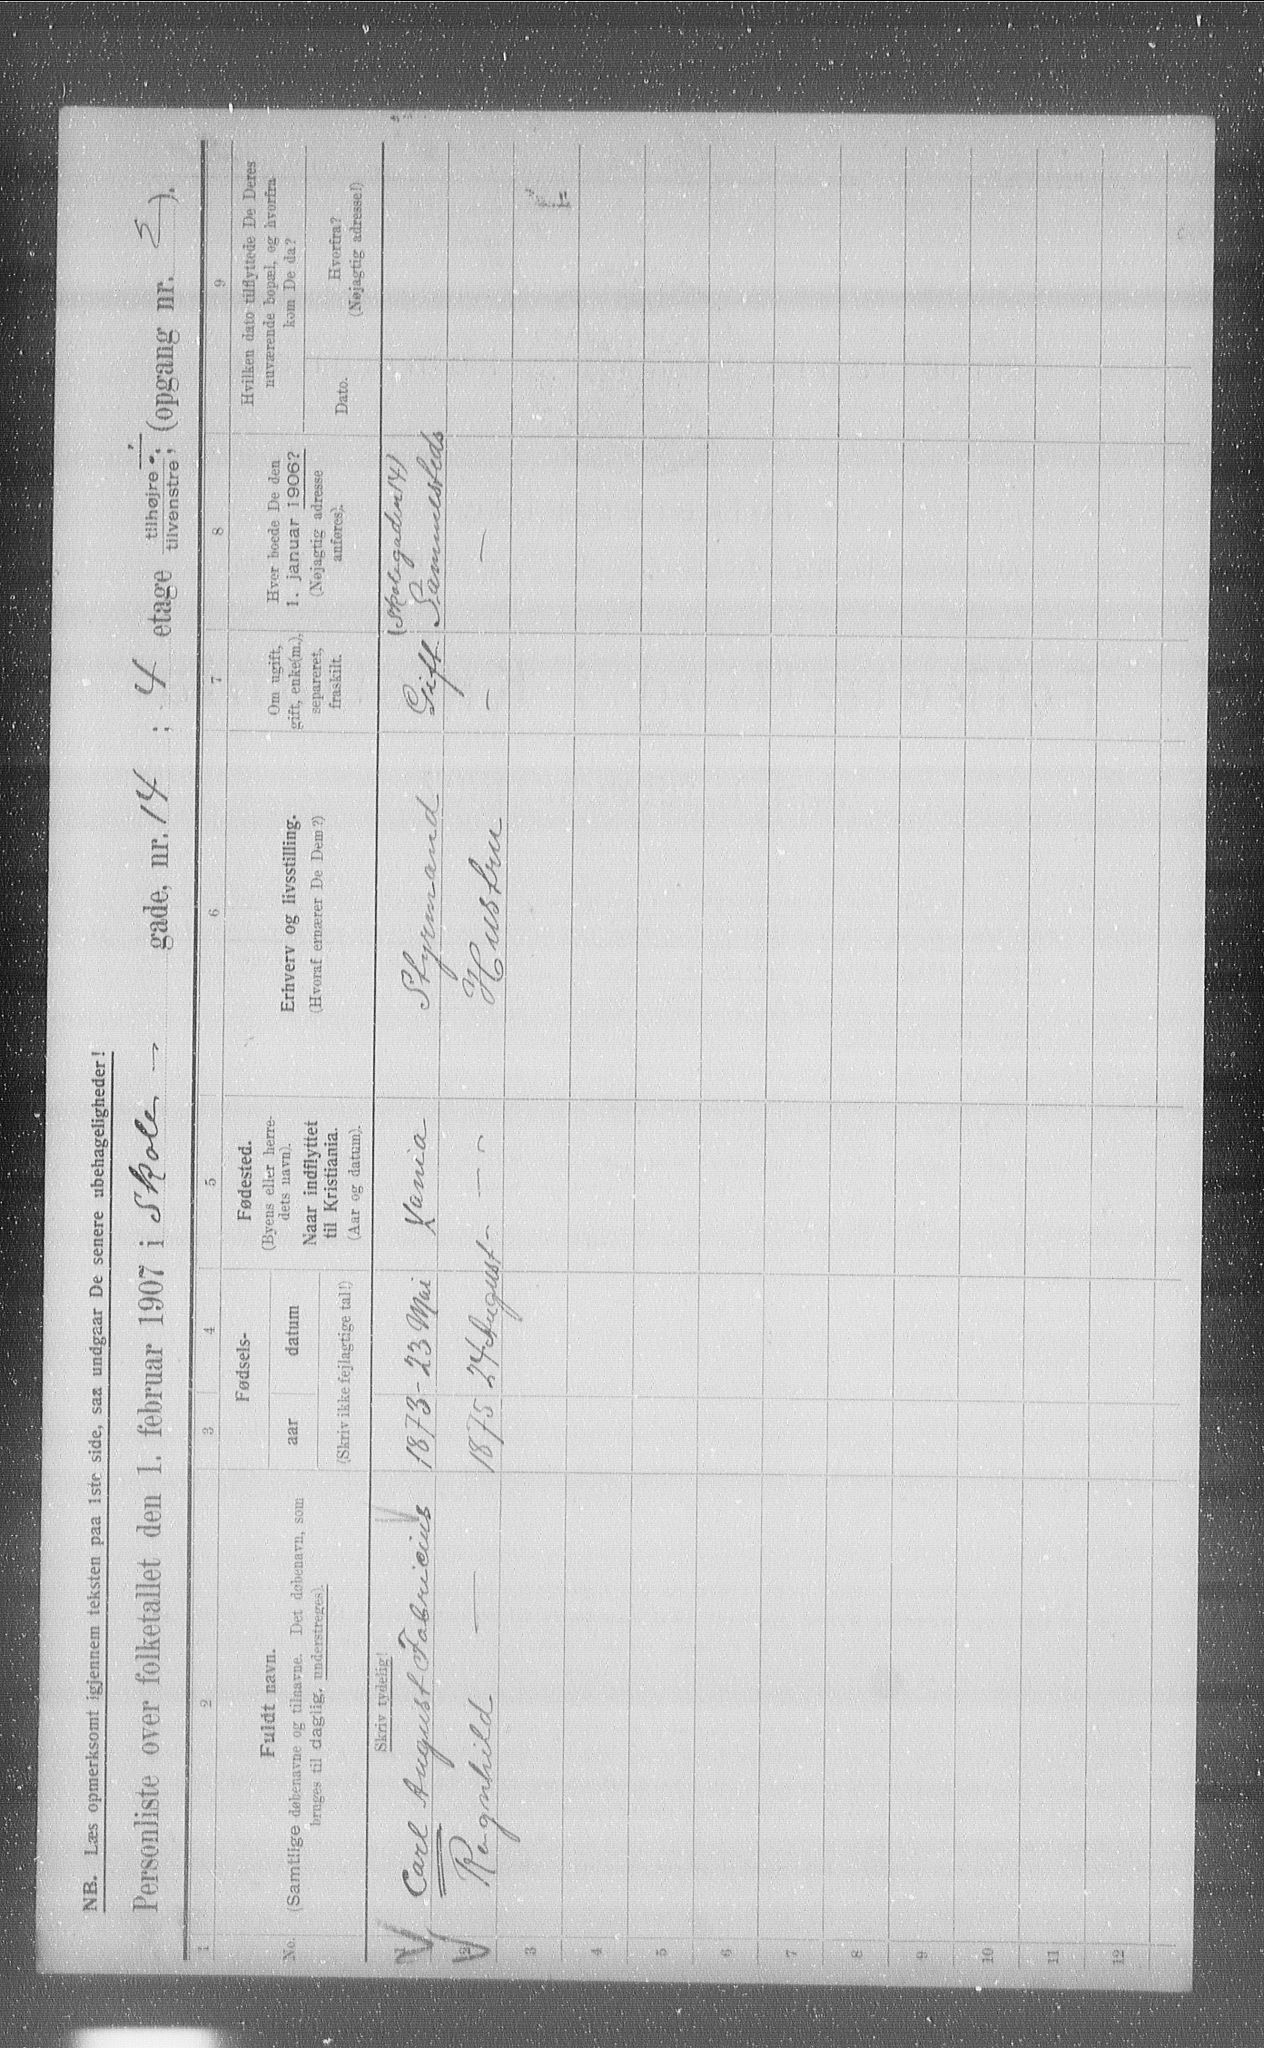 NB. Læs opmerksomt igjennem teksten paa 1ste side, saa undgaar De senere ubehageligheder!
Personliste over folketallet den 1. februar 1907 i Skole - gade, nr. 14 ; 4 etage tilhøjre tilvenstre, (opgang nr. 2 ).
1 2 3 4 5 6 7 8 9
No.
Fuldt navn.
(Samtlige døbenavne og tilnavne. Det døbenavn, som
bruges til daglig, understreges).
Fødsels-
aar datum
(Skriv ikke fejlagtige tal!)
Fødested.
(Byens eller herre-
dets navn).
Naar indflyttet
til Kristiania.
(Aar og datum).
Erhverv og livsstilling.
(Hvoraf ernærer De Dem?)
Om ugift,
gift, enke(m.),
separeret,
fraskilt.
Hvor boede De den
1. januar 1906?
(Nøjagtig adresse
anføres).
Hvilken dato tilflyttede De Deres
nuværende bopæl, og hvorfra
kom De da?
Dato.
Hvorfra?
(Nøjagtig adresse!)
Skriv tydelig!
(Skolegaden 14)
1 Carl August Fabricius 1873 - 23 Mai Kania Styrmand Gift Sammesteds
2 Ragnhild — 1875 24 August - — - Hustru - —
3
4
5
6
7
8
9
10
11
12